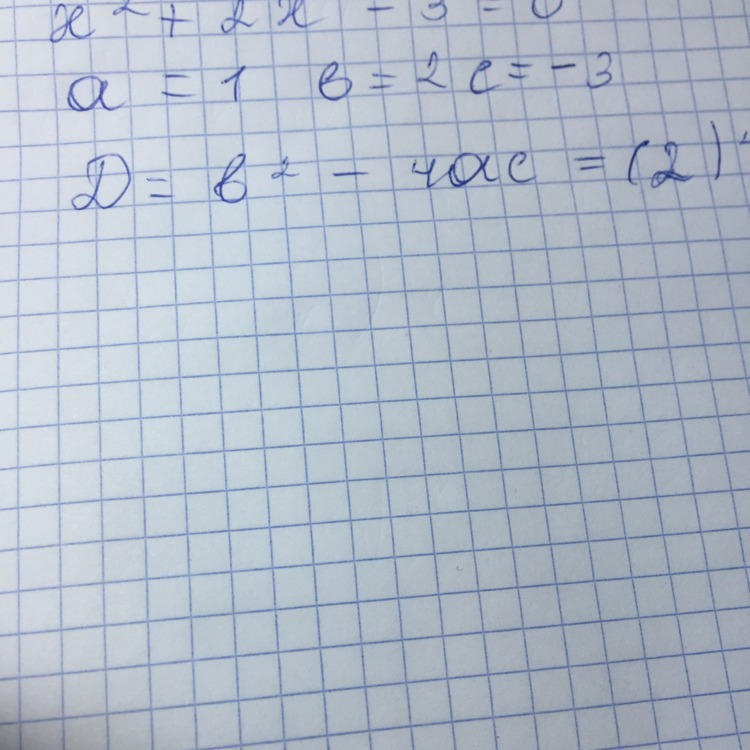 x² + 2x - 3 = 0
a = 1 в = 2 c = -3
D = в² - 4ac = (2)²